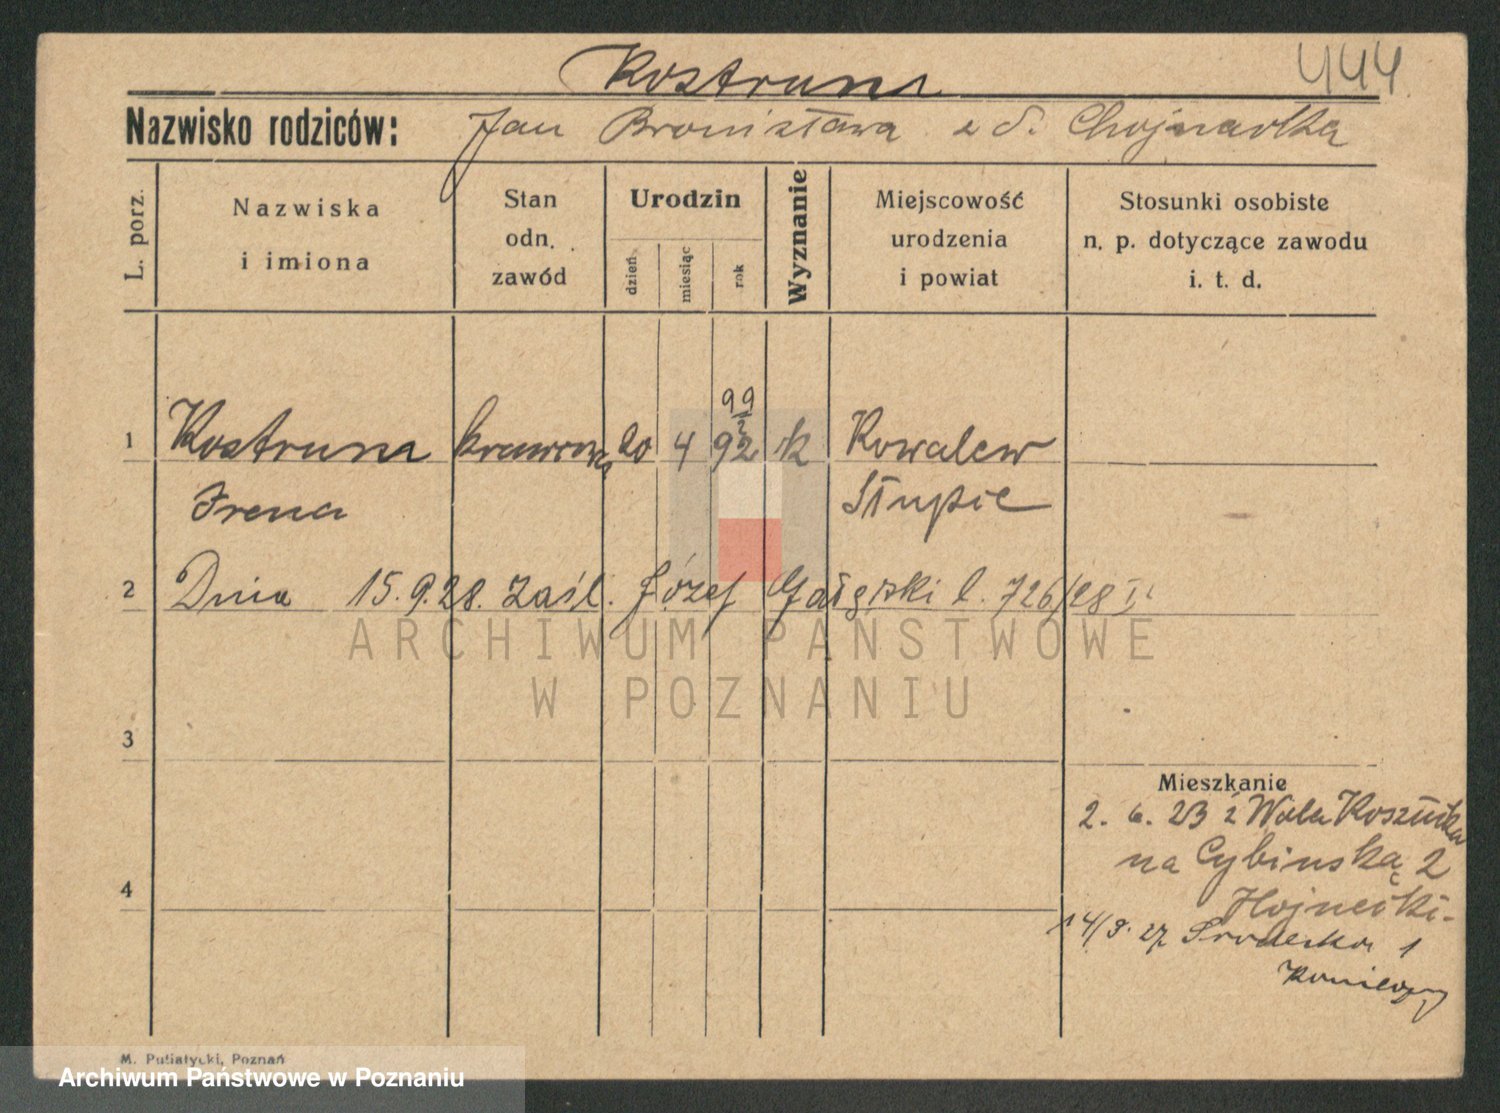 Kostruna
444
Nazwisko rodziców: Jan Bronisława z d. Chojnacka
L. porz.
Nazwiska
i imiona
Stan
odn.
zawód
Urodzin
dzień
miesiąc
rok
Wyznanie
Miejscowość
urodzenia
i powiat
Stosunki osobiste
n. p. dotyczące zawodu
i. t. d.
99
1 Kostruna krawcowa 20 4 92 k Kowalew
Irena Słupie
2 Dnia 15.9.28. Zaśl. Józef l. 726/28
ARCHIWUM PAŃSTWOWE
W POZNANIU
3
Mieszkanie
2. 6. 23 z Wola
na Cybińską 2
4
14/9. 27 Śródecka 1
M. Putiatycki, Poznań
Archiwum Państwowe w Poznaniu